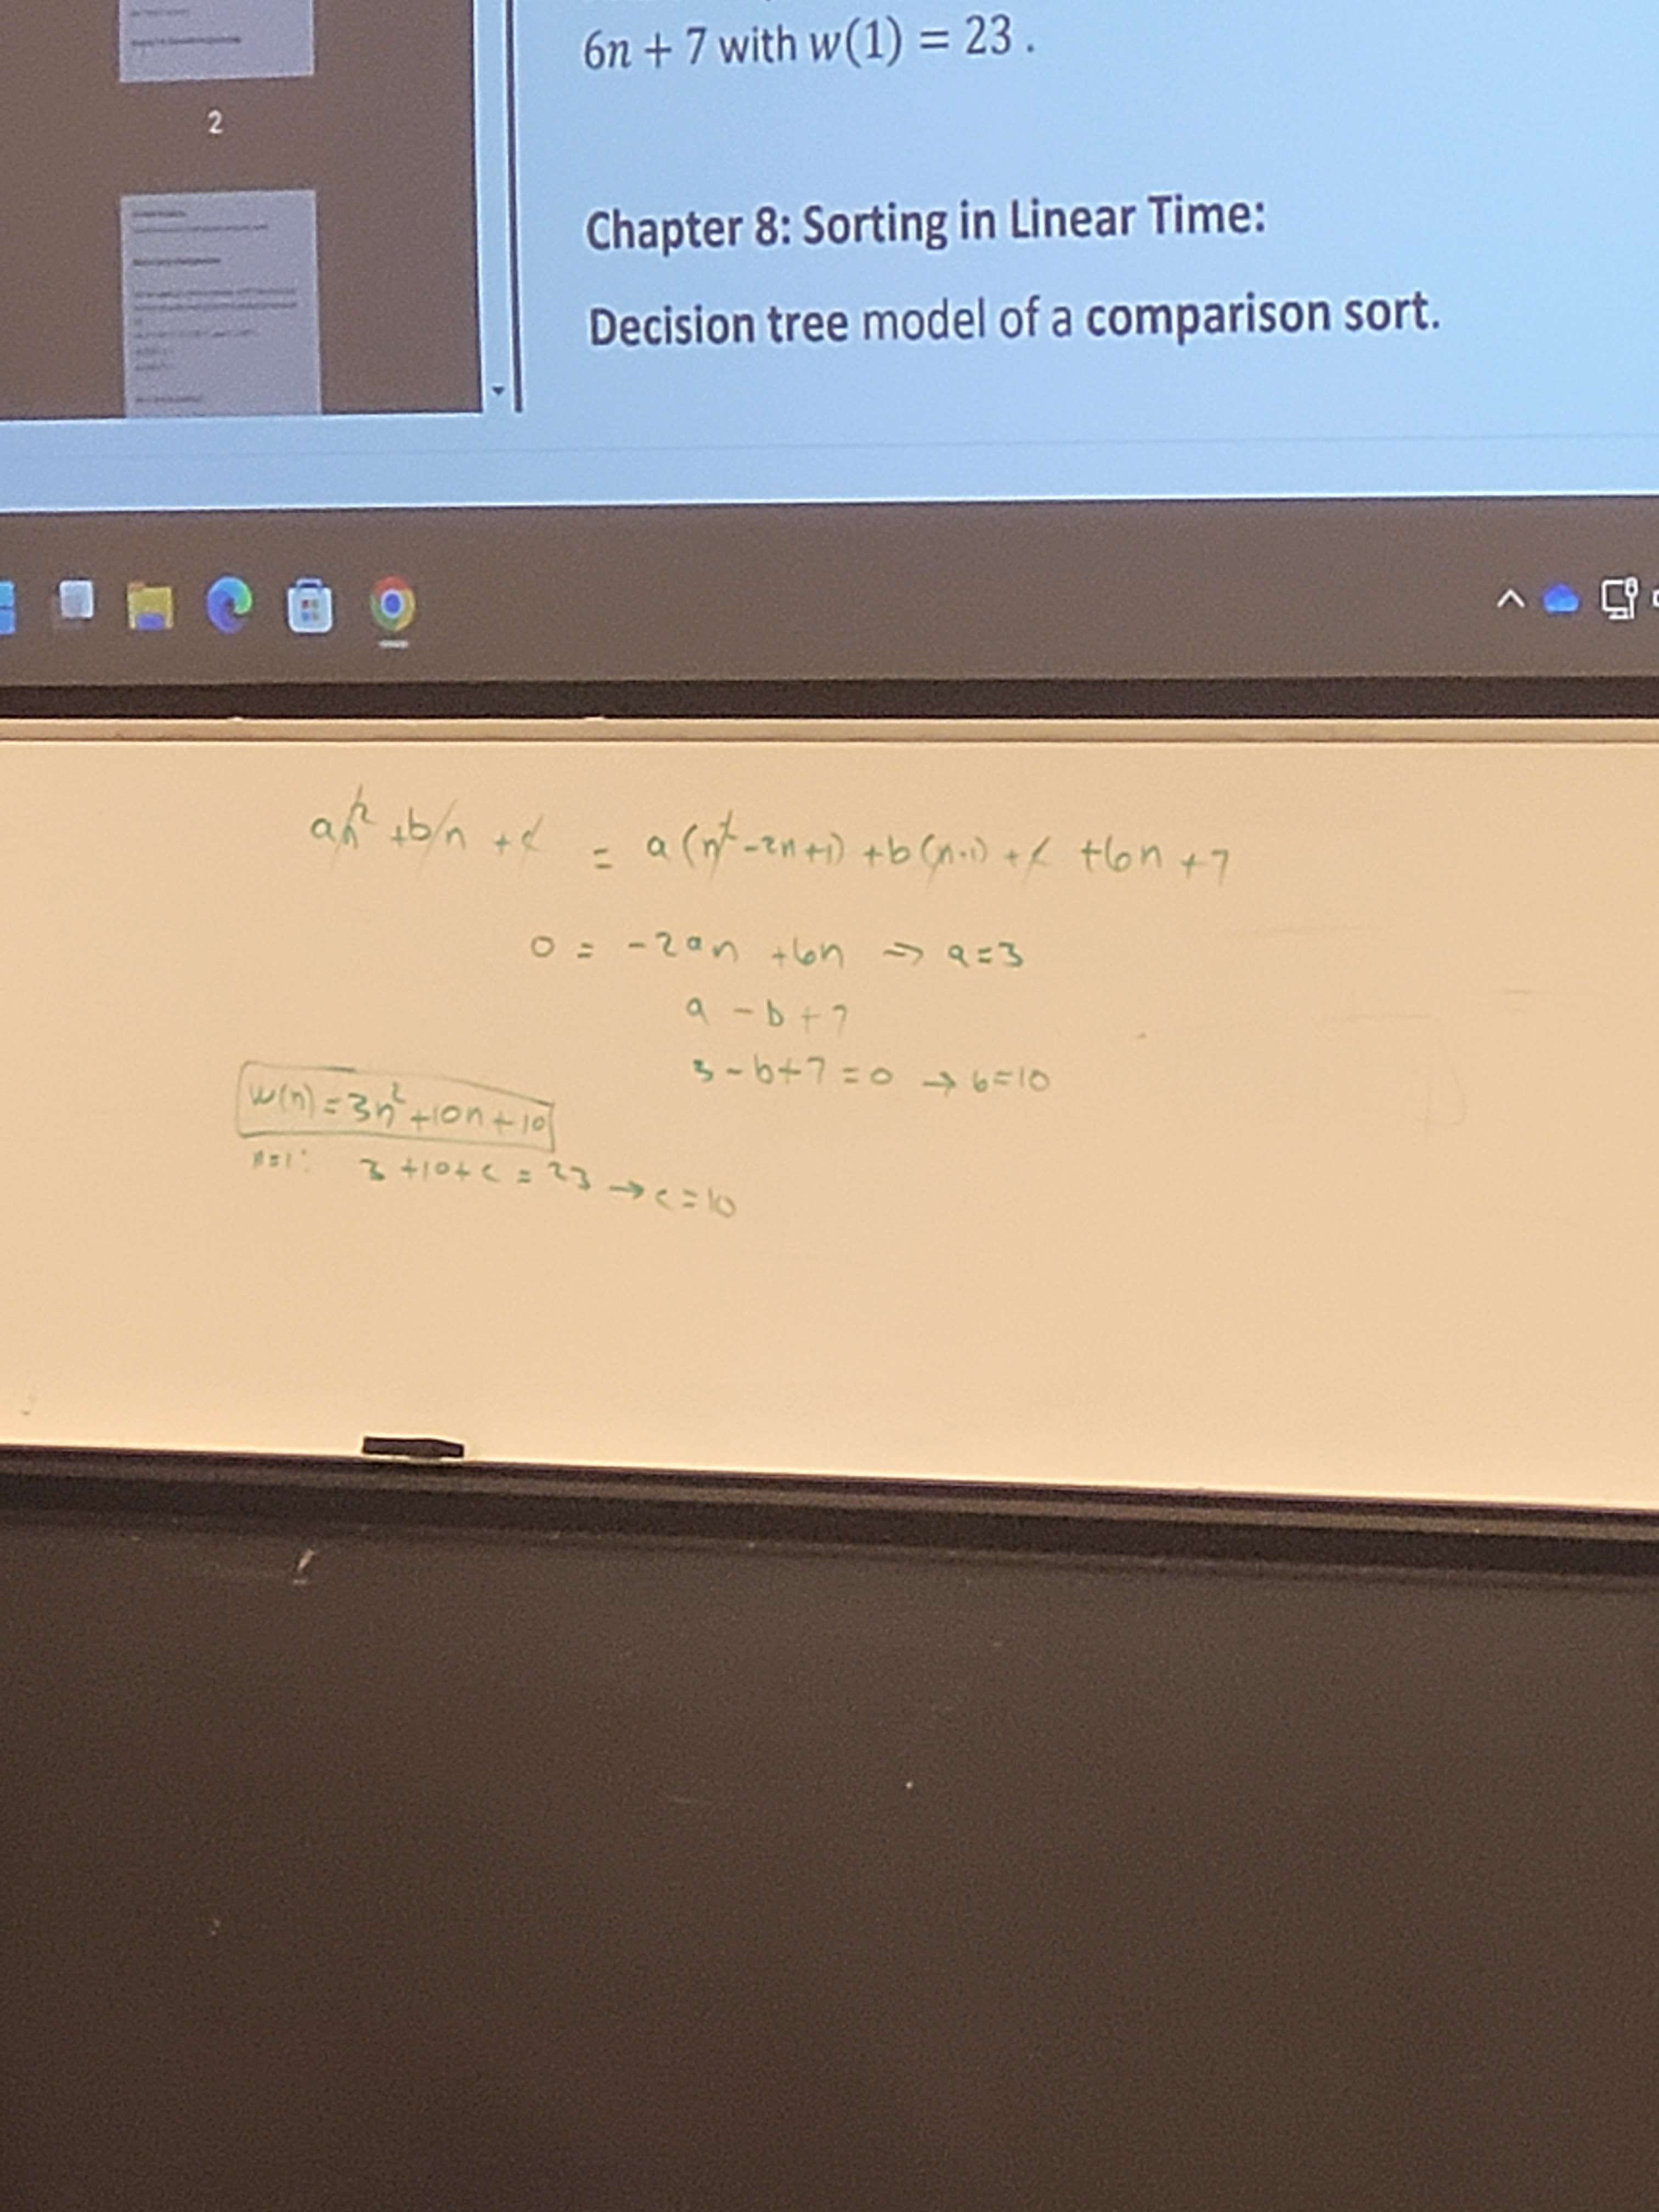 6n + 7 with w(1) = 23 .
2
Chapter 8: Sorting in Linear Time:
Decision tree model of a comparison sort.
an² + bn + c = a(n² - 2n + 1) + b(n-1) + c + 6n + 7
0 = -2an + 6n ⇒ a = 3
a - b + 7
3 - b + 7 = 0 → b = 10
w(n) = 3n² + 10n + 10
n=1: 3 + 10 + c = 23 → c = 10